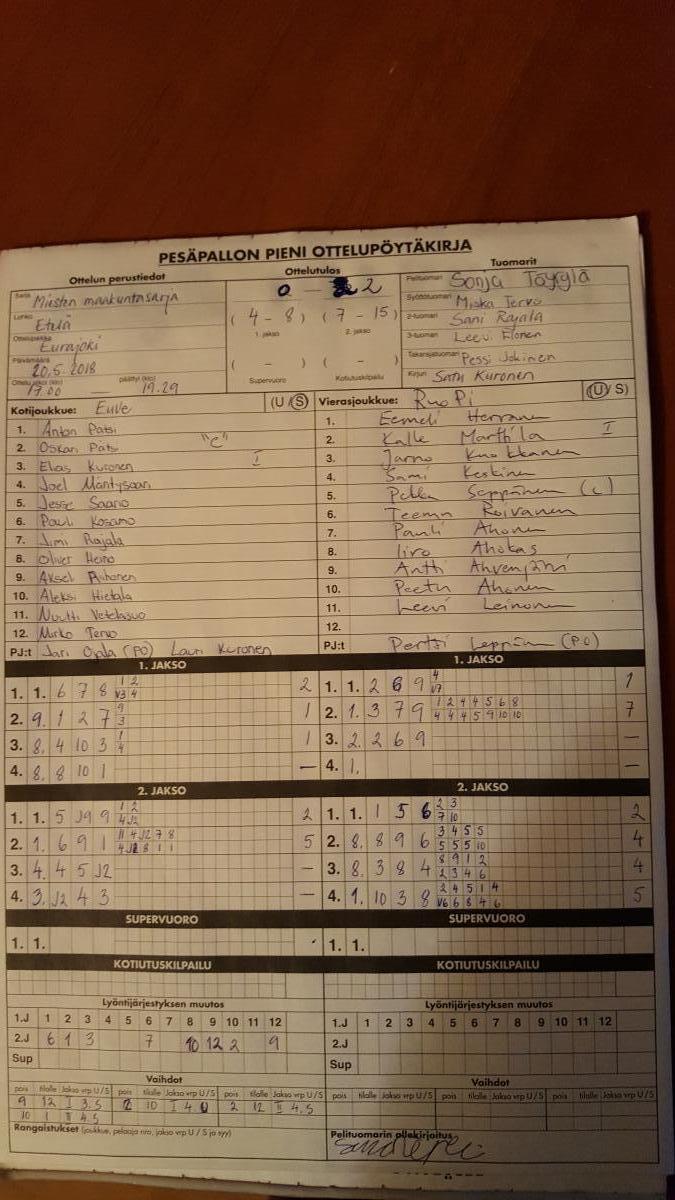 PESÄPALLON PIENI OTTELUPÖYTÄKIRJA
Ottelun perustiedot Ottelutulos Tuomarit
Sarja Miesten maakuntasarja
Lohko Etelä
Ottelupaikka Eurajoki
Päivämäärä 20.5.2018
Ottelu alkoi (klo) 17.00 päättyi (klo) 19.29
0 - 2
(4 - 8) (7 - 15)
1. jakso 2. jakso
( - ) ( - )
Supervuoro Kotiutuskilpailu
Pelituomari Sonja Töykylä
Syöttötuomari Miska Tervo
2-tuomari Sani Rajala
3-tuomari Leevi Elonen
Takarajatuomari Pessi Jokinen
Kirjuri Satu Kuronen
Kotijoukkue: Euve (U/S)
1. Anton Pätsi
2. Oskari Pätsi "C"
3. Elias Kuronen I
4. Joel Mäntysaari
5. Jesse Saario
6. Pauli Kosamo
7. Jimi Rajala
8. Oliver Heino
9. Aksel Riihonen
10. Aleksi Hietala
11. Nuutti Vetelasuo
12. Mirko Tervo
PJ:t Jari Ojala (PO) Lauri Kuronen
Vierasjoukkue: RuoPi (U/S)
1. Eemeli Herranen
2. Kalle Marttila I
3. Jarno Kuokkanen
4. Sami Keskinen
5. Pekka Seppänen (c)
6. Teemu Roivanen
7. Pauli Ahonen
8. Iiro Ahokas
9. Antti Ahvenjärvi
10. Peetu Ahonen
11. Leevi Leinonen
12.
PJ:t Pertti Leppänen (PO)
1. JAKSO 1. JAKSO
1. 1. 6 7 8 1 2 2
V3 4
2. 9. 1 2 7 9 1
3
3. 8. 4 10 3 1 1
4
4. 8. 8 10 1 —
1. 1. 2 6 9 4 1
V7
2. 1. 3 7 9 1 2 4 4 5 6 8 7
4 4 4 5 9 10 10
3. 2. 2 6 9 —
4. 1. —
2. JAKSO 2. JAKSO
1. 1. 5 J9 9 1 2 2
4 J2
2. 1. 6 9 1 11 4 J2 7 8 5
4 J2 8 1 1
3. 4. 4 5 J2 —
4. 3. J2 4 3 —
1. 1. 1 5 6 2 3 2
7 10
2. 8. 8 9 6 3 4 5 5 4
5 5 5 10
3. 8. 3 8 4 8 9 1 2 4
2 3 4 6
4. 1. 10 3 8 2 4 5 1 4 5
V6 6 8 4 6
SUPERVUORO SUPERVUORO
1. 1. 1. 1.
KOTIUTUSKILPAILU KOTIUTUSKILPAILU
Lyöntijärjestyksen muutos Lyöntijärjestyksen muutos
1.J 1 2 3 4 5 6 7 8 9 10 11 12 1.J 1 2 3 4 5 6 7 8 9 10 11 12
2.J 6 1 3 7 10 12 2 9 2.J
Sup Sup
Vaihdot Vaihdot
pois tilalle Jakso vrp U/S pois tilalle Jakso vrp U/S pois tilalle Jakso vrp U/S pois tilalle Jakso vrp U/S pois tilalle Jakso vrp U/S pois tilalle Jakso vrp U/S
9 12 I 3.S 2 10 I 4 U 2 12 II 4.S
10 1 II 4.S
Rangaistukset (joukkue, pelaaja nro, jakso vrp U / S ja syy) Pelituomarin allekirjoitus